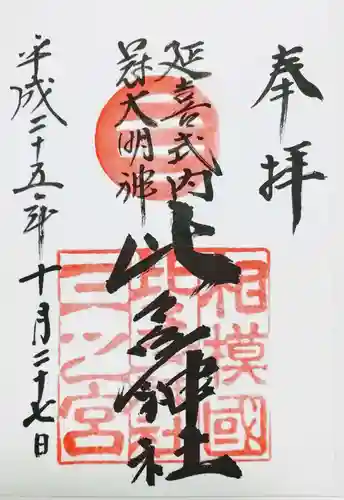 奉拝
延喜式内
冠大明神
比々多神社
相模國
比々多神社
三之宮
平成二十五年十月二十七日